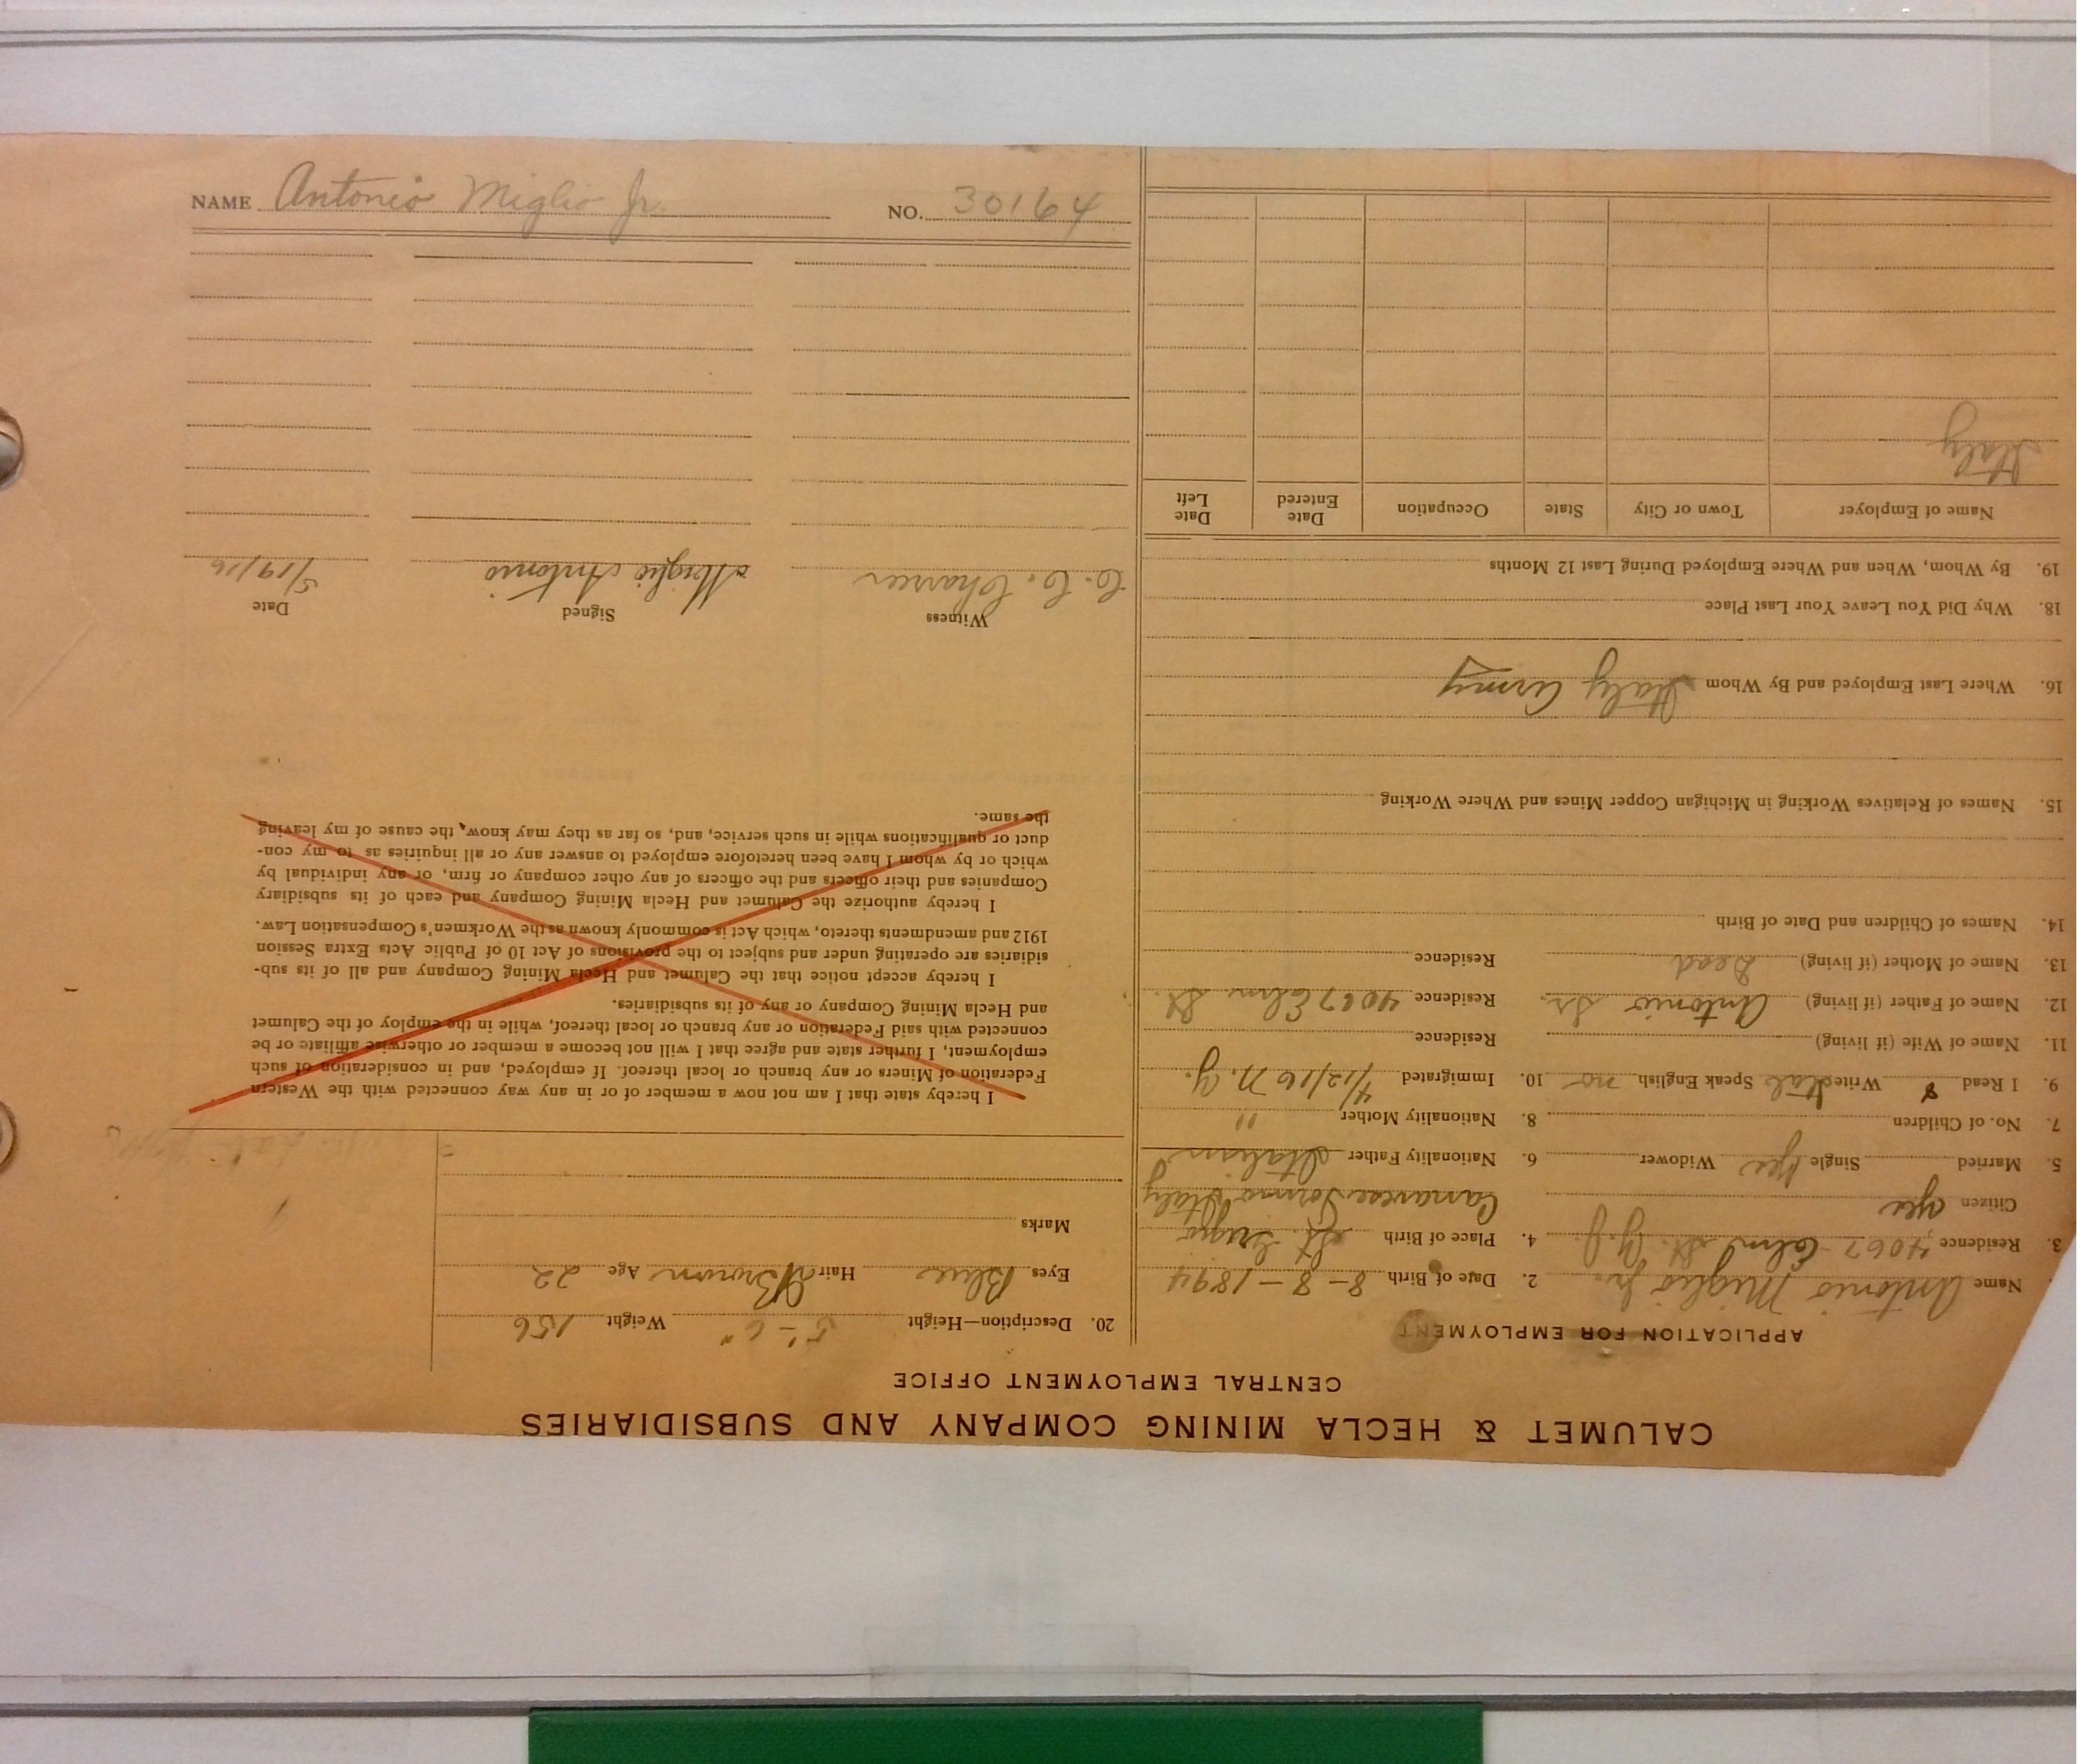 CALUMET & HECLA MINING COMPANY AND SUBSIDIARIES
CENTRAL EMPLOYMENT OFFICE
APPLICATION FOR EMPLOYMENT
Name Antonio Miglio Jr. 2. Date of Birth 8-8-1894
3. Residence 4067 Elm St. Y.J. 4. Place of Birth St.
Citizen yes Italy
5. Married Single yes Widower 6. Nationality Father Italian
7. No. of Children 8. Nationality Mother "
9. I Read & Write Ital Speak English no 10. Immigrated 4/12/16 N.Y.
11. Name of Wife (if living) Residence
12. Name of Father (if living) Antonio Sr. Residence 4067 Elm St.
13. Name of Mother (if living) Dead Residence
14. Names of Children and Date of Birth
15. Names of Relatives Working in Michigan Copper Mines and Where Working
16. Where Last Employed and By Whom Italy Army
18. Why Did You Leave Your Last Place
19. By Whom, When and Where Employed During Last 12 Months
Name of Employer Town or City State Occupation Date Entered Date Left
Italy
20. Description—Height 5'-6" Weight 156
Eyes Blue Hair Brown Age 22
Marks
I hereby state that I am not now a member of or in any way connected with the Western
Federation of Miners or any branch or local thereof. If employed, and in consideration of such
employment, I further state and agree that I will not become a member or otherwise affiliate or be
connected with said Federation or any branch or local thereof, while in the employ of the Calumet
and Hecla Mining Company or any of its subsidiaries.
I hereby accept notice that the Calumet and Hecla Mining Company and all of its sub-
sidiaries are operating under and subject to the provisions of Act 10 of Public Acts Extra Session
1912 and amendments thereto, which Act is commonly known as the Workmen's Compensation Law.
I hereby authorize the Calumet and Hecla Mining Company and each of its subsidiary
Companies and their officers and the officers of any other company or firm, or any individual by
which or by whom I have been heretofore employed to answer any or all inquiries as to my con-
duct or qualifications while in such service, and, so far as they may know, the cause of my leaving
the same.
Witness Signed Date
C. C. Miglio Antonio 5/19/16
NAME Antonio Miglio Jr. NO. 30164